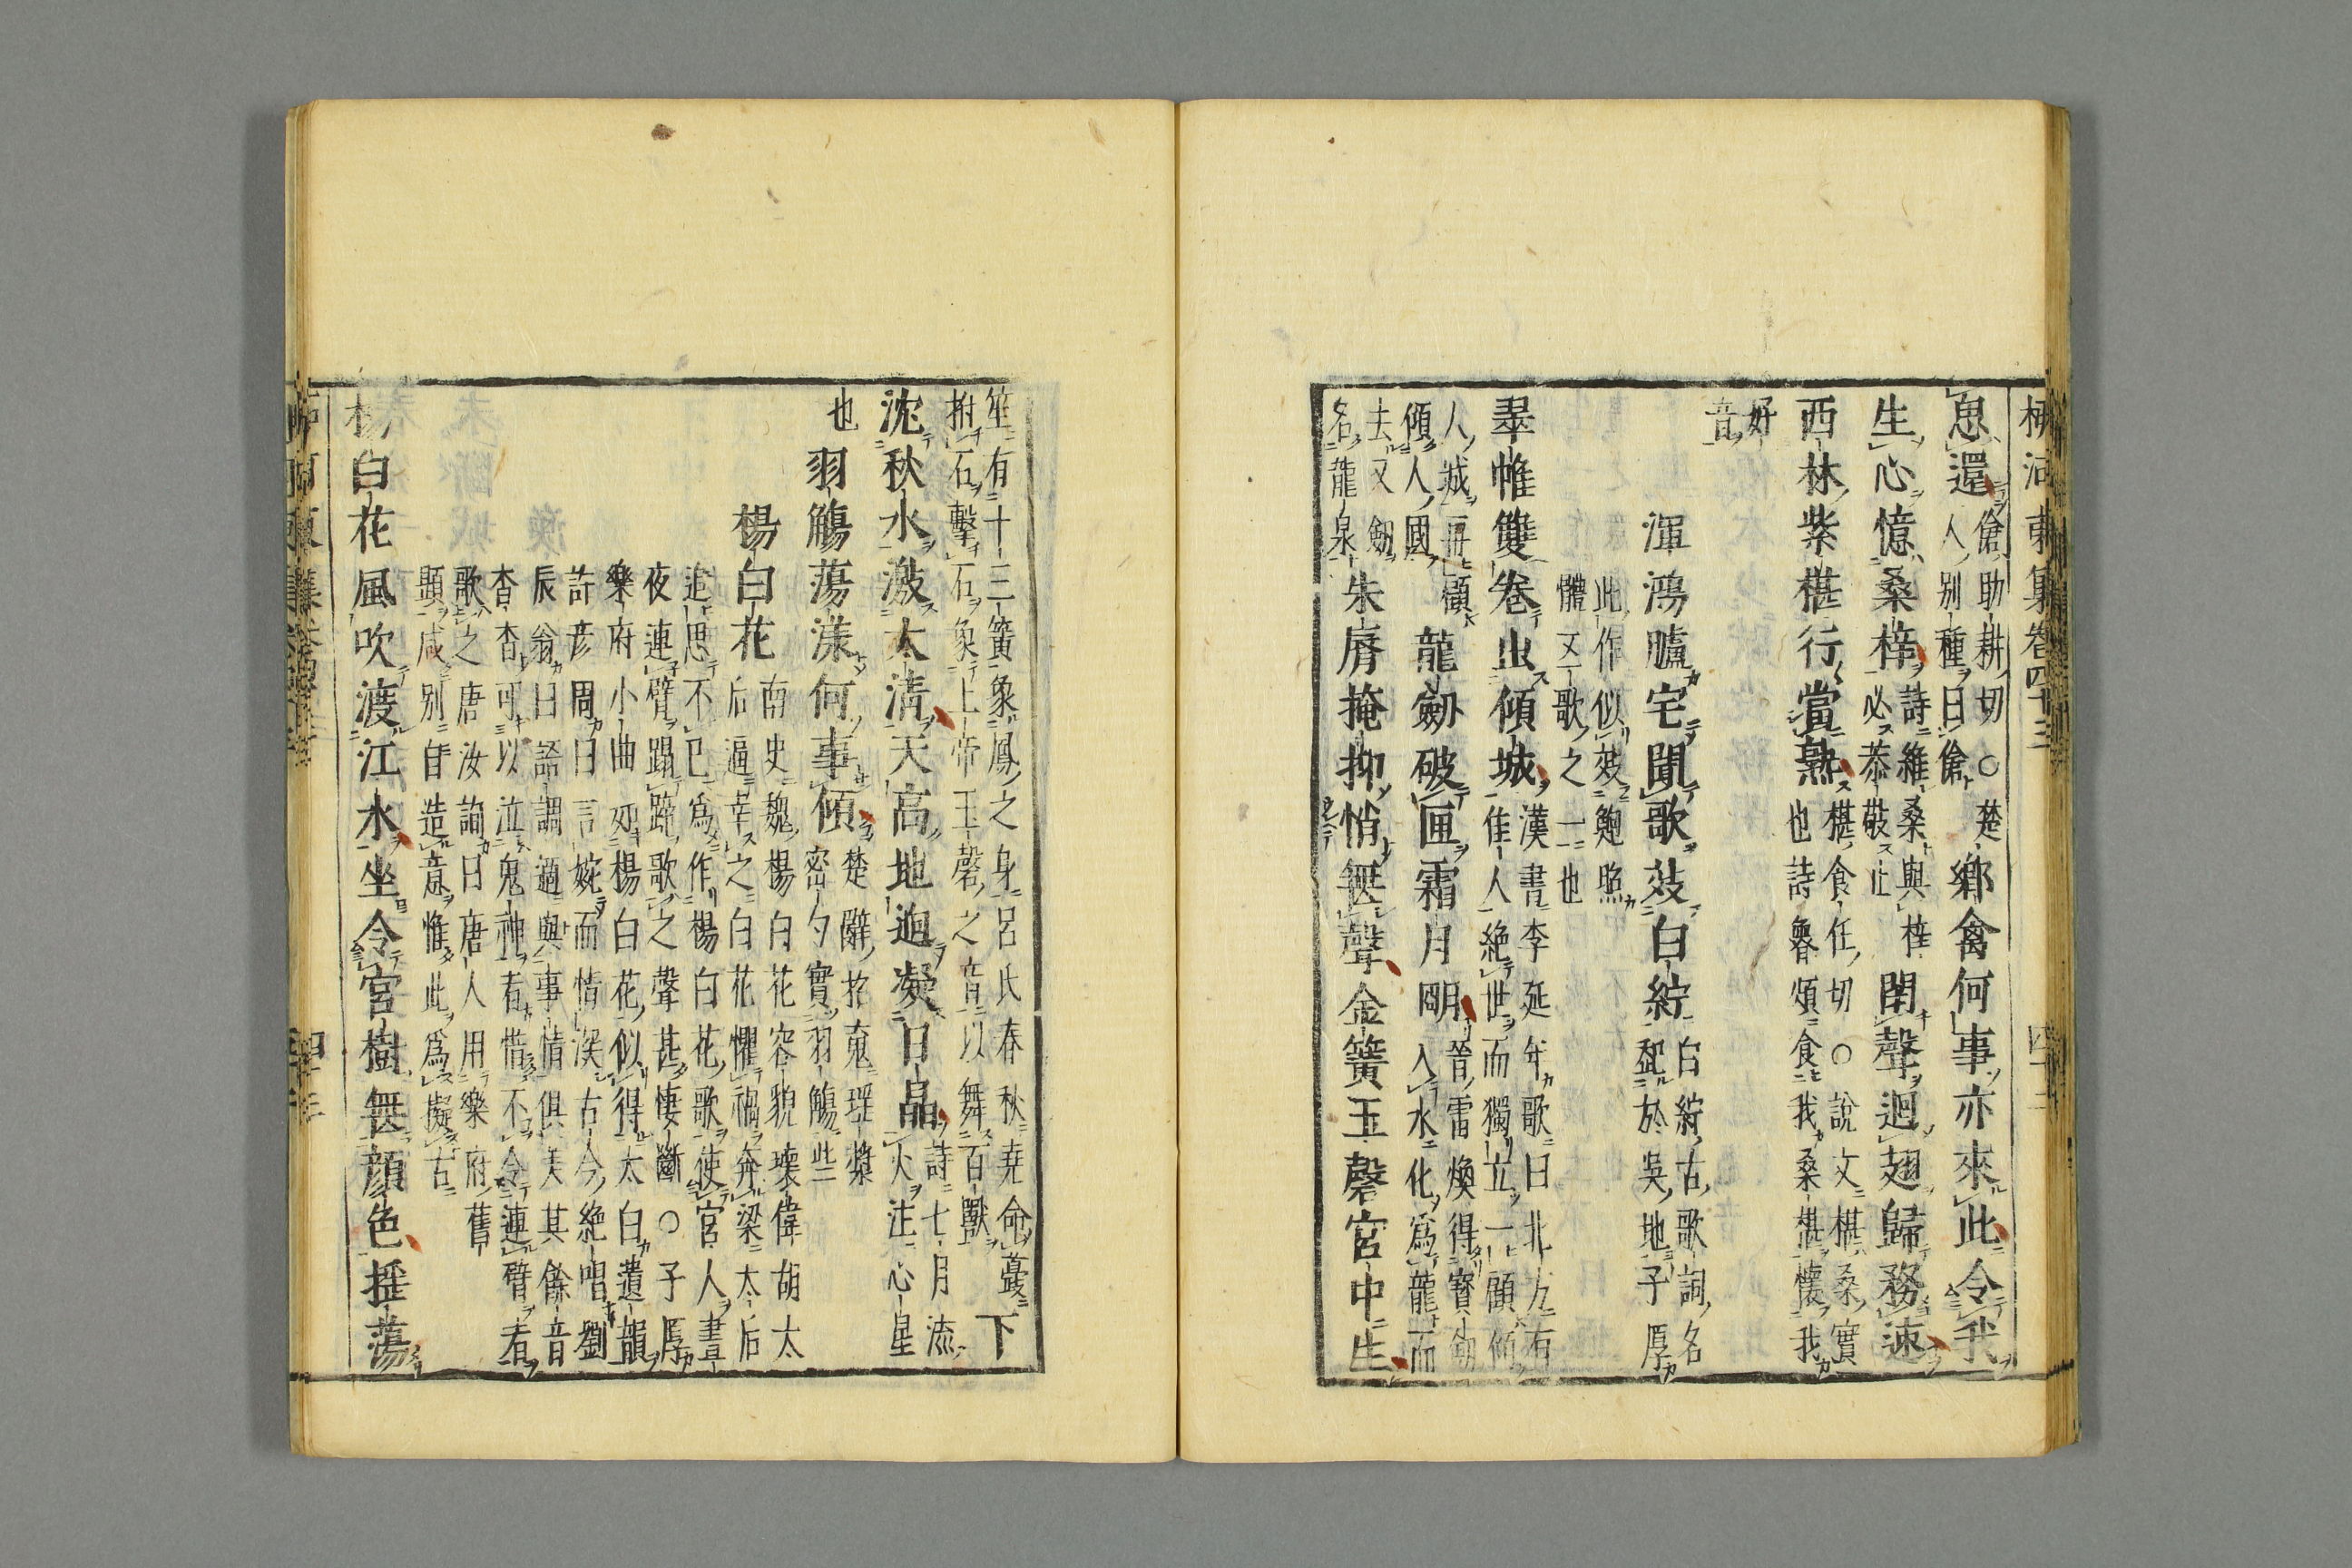 柳河東集卷四十三
息還
傖助耕切○楚
人別種曰傖
鄉禽何事亦來此令我
生心憶桑梓
詩維桑與梓
必恭敬止
閉聲迴翅歸務速
西林紫椹行當熟
椹食任切○說文椹桑實
也詩魯頌食我桑椹懷我
好
音
渾鴻臚宅聞歌效白紵
白紵古歌詞名
起於吳地子厚
此作似效鮑照
體又歌之一也
翠帷雙卷出傾城
漢書李延年歌曰北方有
佳人絕世而獨立一顧傾
人城再顧
傾人國
龍劒破匣霜月明
晉雷煥得寶劒
入水化爲龍而
去又劒
名龍泉
朱脣掩抑悄無聲金簧玉磬宮中生
笙有十三簧象鳳之身呂氏春秋堯命夔
拊石擊石象上帝玉磬之音以舞百獸
下
沈秋水激太清天高地迥凝日晶
詩七月流
火注心星
也
羽觴蕩漾何事傾
楚辭招䰟瑶漿
密勺實羽觴些
楊白花
南史魏楊白花容貌瓌偉胡太
后逼幸之白花懼禍奔梁太后
追思不已爲作楊白花歌使宮人晝
夜連臂蹋蹄歌之聲甚悽斷○子厚
樂府小曲如楊白花似得太白遺韻
許彥周曰言婉而情深古今絕唱劉
辰翁曰語調適與事情俱美其餘音
杳杳可以泣鬼神者惜不令連臂者
歌之唐汝詢曰唐人用樂府舊
題咸別自造意惟此爲擬古
楊白花風吹渡江水坐令宮樹無顏色揺蕩